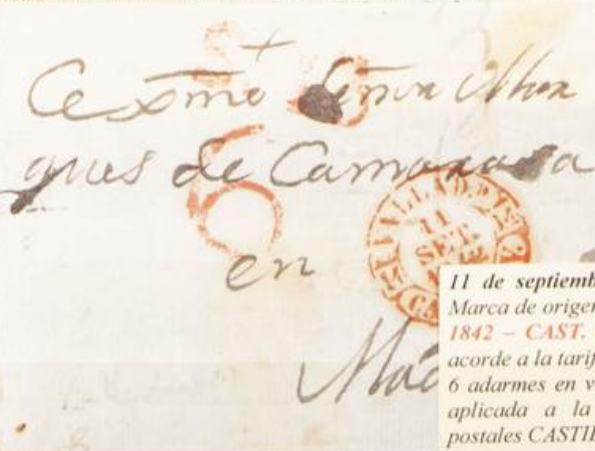 +
Exmo Señor Mar
ques de Camarasa
6
en
VALLADOLID
11
SET
Mad
11 de septiemb
Marca de origen
1842 – CAST.
acorde a la tarif
6 adarmes en v
aplicada a la
postales CASTIL